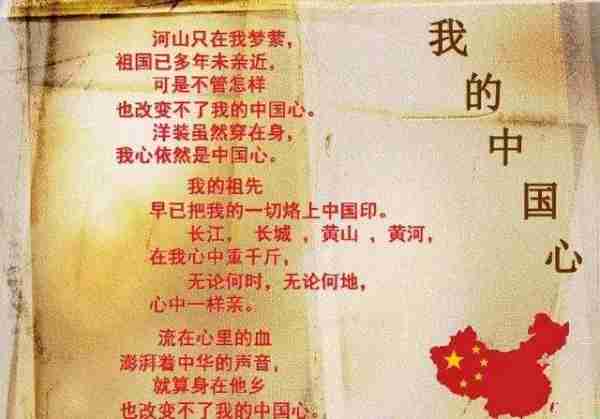 我的中国心
河山只在我梦萦，
祖国已多年未亲近。
可是不管怎样
也改变不了我的中国心。
洋装虽然穿在身，
我心依然是中国心。
我的祖先
早已把我的一切烙上中国印。
长江， 长城 ，黄山 ，黄河，
在我心中重千斤，
无论何时，无论何地，
心中一样亲。
流在心里的血
澎湃着中华的声音，
就算身在他乡
也改变不了我的中国心。